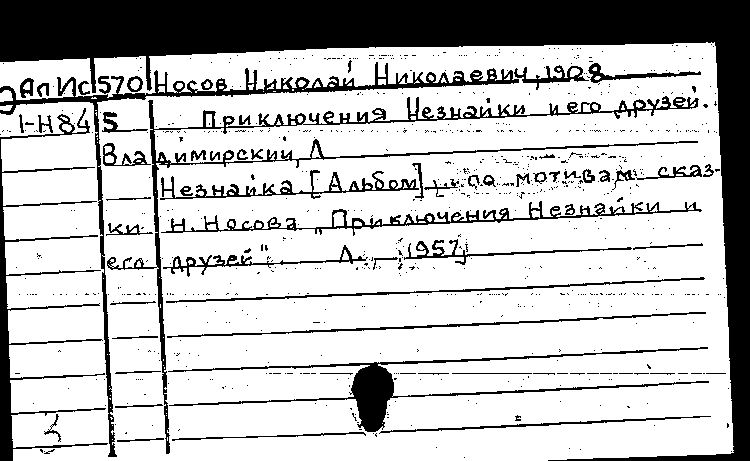 Э Ап Ис 570 Носов, Николай Николаевич, 1908
1-Н84 5 Приключения Незнайки и его друзей.
Владимирский, Л
Незнайка. [Альбом] по мотивам сказ-
ки Н. Носова „Приключения Незнайки и
его друзей". Л., 1957
3